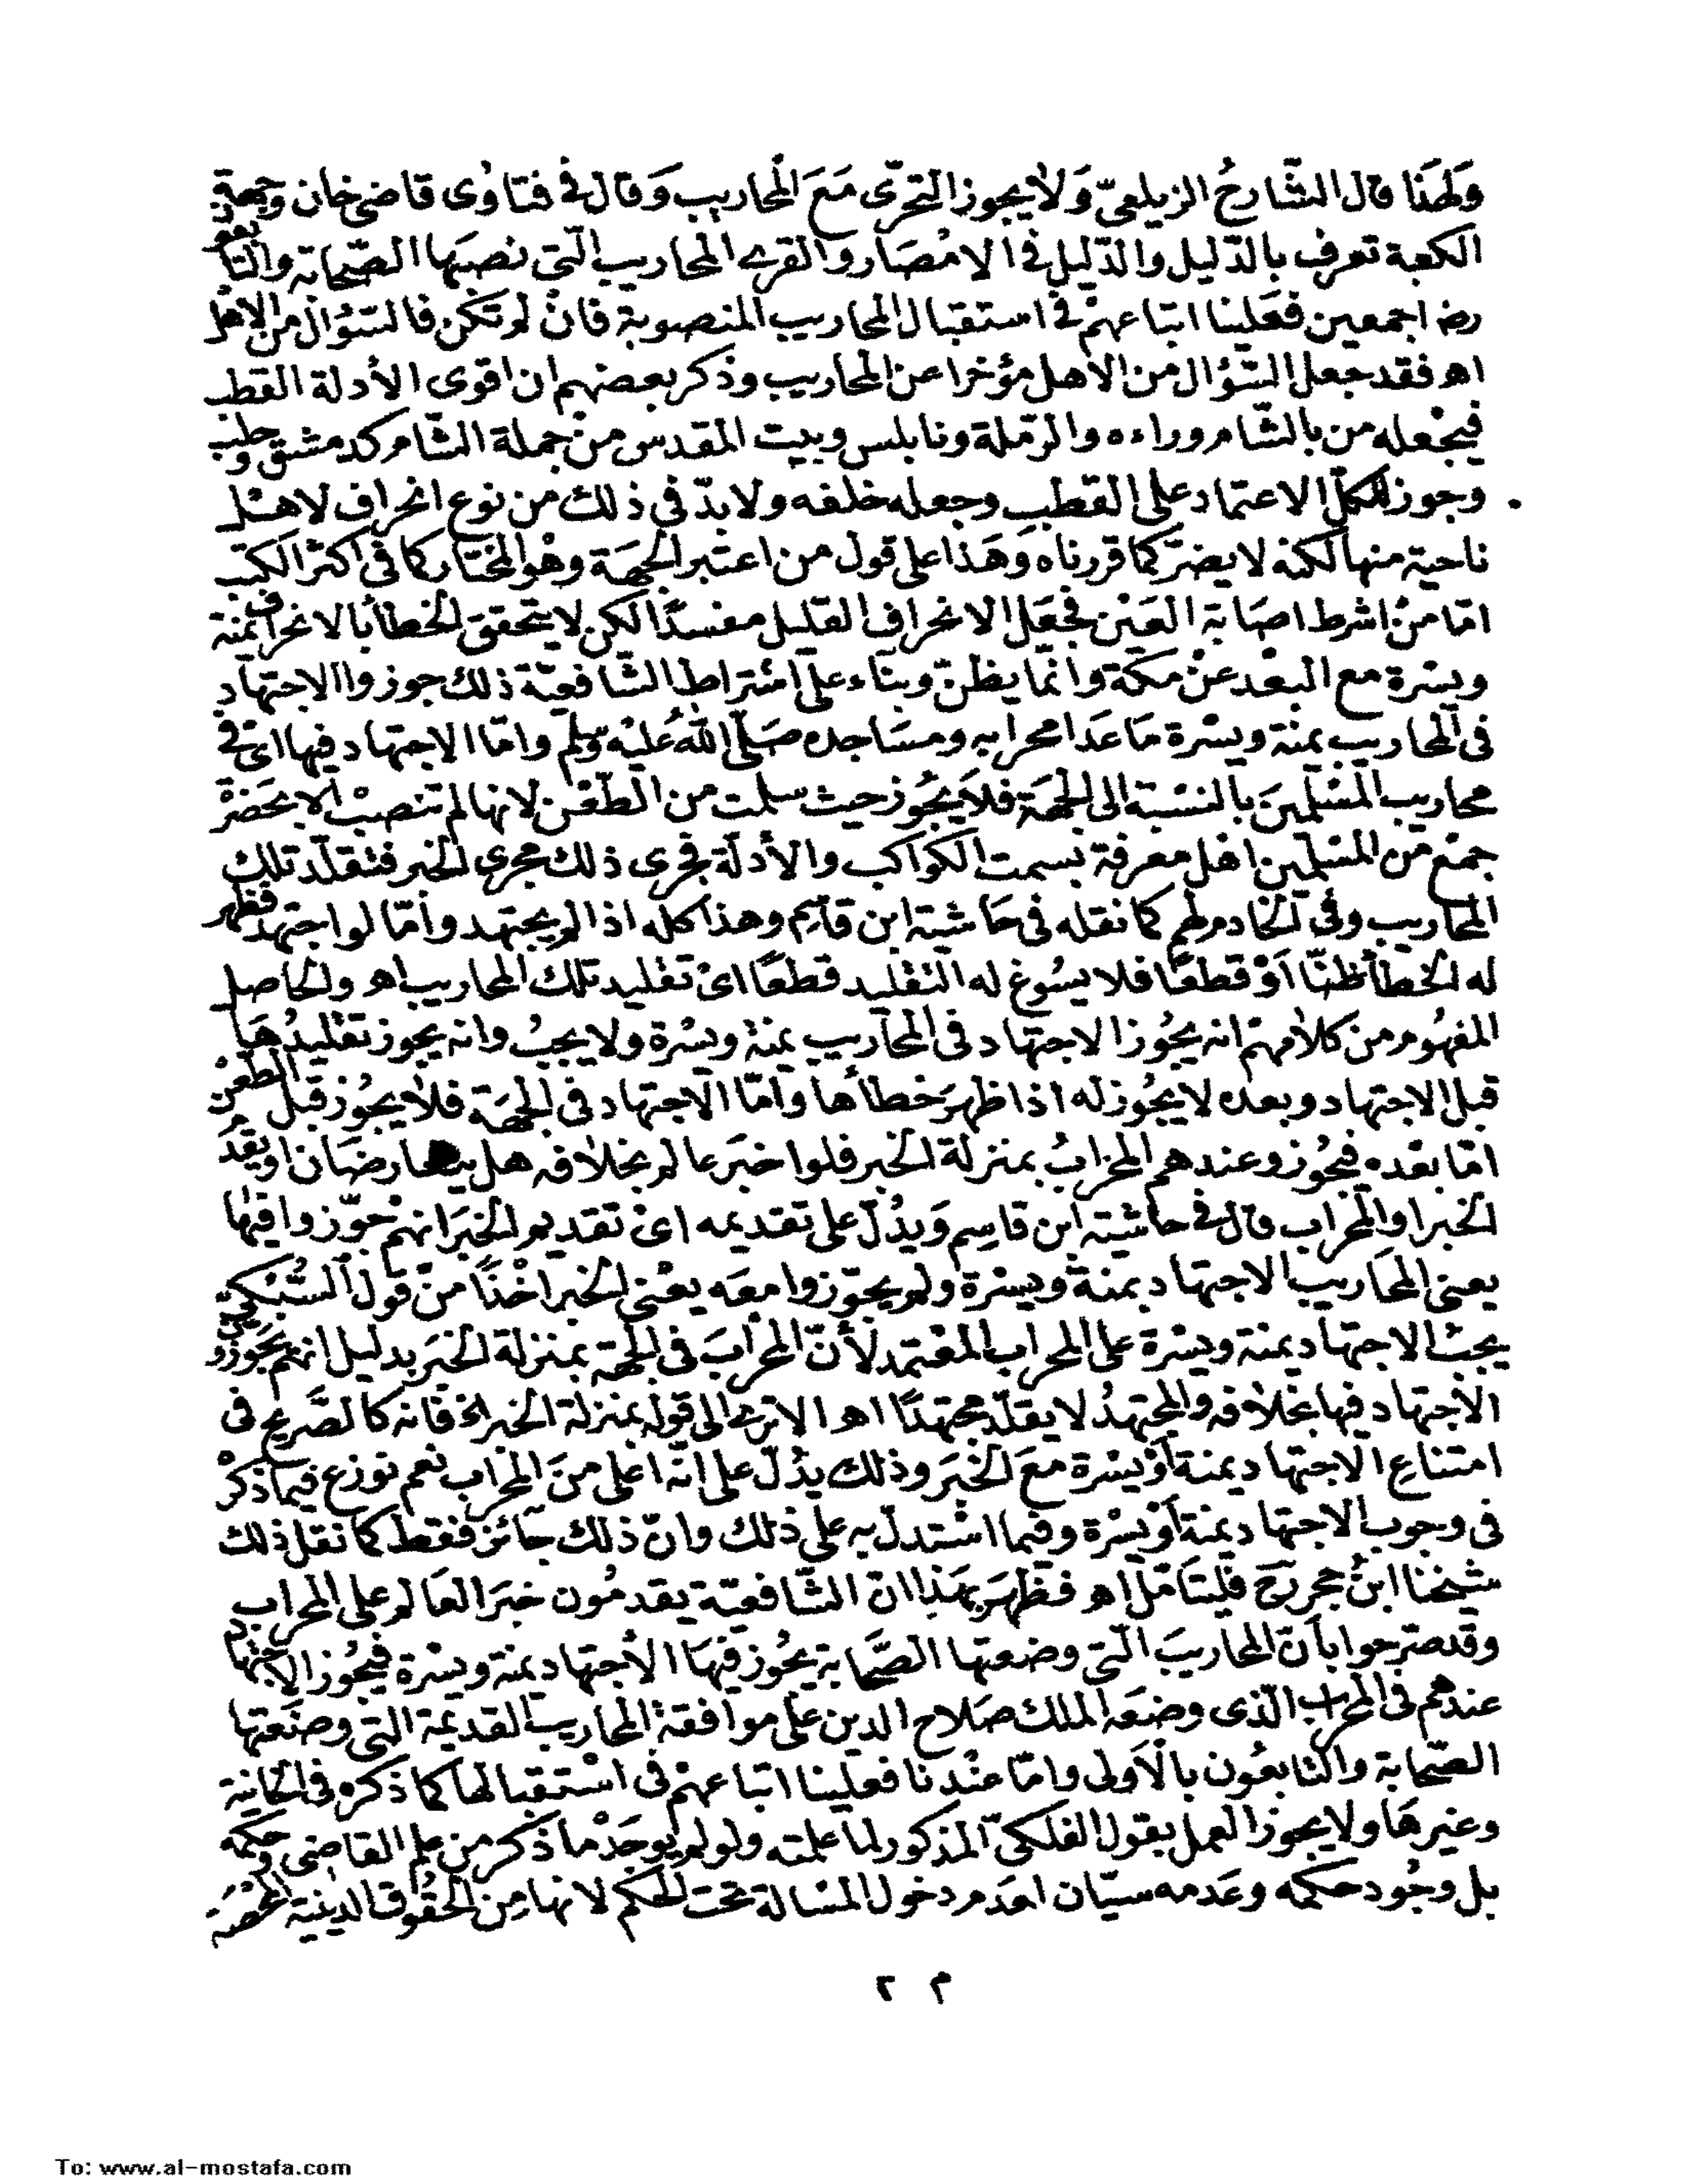 وَلهَذا قال الشّارحُ الزيلعىّ وَلا يجوز التحرّى مَعَ المحاريب وَقال فى فتاوُى قاضى خان وجهة
الكعبة تعرف بالدّليل والدّليل فى الامْصَار والقرى المحاريب الّتى نصبَها الصّحابة والتابعون
رضه اجمعين فعَلينا اتباعهمْ فى استقبال المحاريب المنصوبة فانْ لم تكن فالسّؤال من الاهل
اه فقد جعل السّؤال من الأهل مؤخرا عن المحاريب وذكر بعضهم ان اقوى الأدلة القطب
فيجْعله من بالشّام وراءه والرّملة ونابلس وبيت المقدس منْ جملة الشّام كدمشق وحلب
وجوز للكلّ الاعتماد على القطب وجعله خلفه ولا بدّ فى ذلك من نوع انحراف لاهْل
ناحية منها لكنه لا يضرّ كما قررناه وَهَذا على قول من اعتبر الجهَة وهْو المختار كما فى اكثر الكتب
امّا منْ اشرط اصَابة العَيْن فجعَل الانحراف القليل مفسدًا لكن لا يتحقق الخطأ بالانحراف يمنة
ويسْرة مع البعْد عنْ مكّة وانّما يظنّ وبناء على اشتراط الشّافعيّة ذلك جوزوا الاجتهاد
فى المحاريب يمنة ويسْرة مَا عَدا محرابه ومسَاجده صَلّى اللهُ عَليْه وَسلم وامّا الاجتهاد فيها اىْ فى
محاريب المسْلمينَ بالنسْبة الى الجهَة فلا يجُوز حيث سلمت من الطّعْن لانها لم تنصبْ الا بحَضرْة
جمْع من المسْلمين اهْل معرفة بسمت الكواكب والأدلّة فجرى ذلك مجرى الخبر فنقلّد تلك
المحاريب وفى الخادم لهم كما نقله فى حَاشية ابن قاسِم وهذا كله اذا لم يجتهد وامّا لو اجتهد فظهر
له الخطأ ظنّا اَوْ قطعًا فلا يسُوغ له التقْليد قطعًا اىْ تقليد تلك المحاريب اه والحاصل
المفهُوم من كلامهمْ انه يجُوز الاجتهاد فى المحاريب يمنة ويسْرة ولا يجبُ وانه يجوز تقليدُهَا
قبل الاجتهاد وبعده لا يجُوز له اذا ظهرَ خطأها وامّا الاجتهاد فى الجهَة فلا يجُوز قبْل الطعْن
امّا بعْده فيجُوز وعندهم المحْرابُ بمنزلة الخبر فلو اخبَر عالم بخلافه هل يتعارضَان او يقدّم
الخبر او المحْراب قال فى حاشية ابن قاسِم وَيدُلّ على تقديمه اىْ تقديم الخبَر انهمْ جوّزوا فيهَا
يعنى المحَاريب الاجتهاد يمنة ويسْرة ولم يجوّزوا معَه يعْنى الخبر اخْذًا منْ قول السُّبْكى
يجبُ الاجتهاد يمنة ويسْرة على المحراب المعْتمد لأنّ المحْرابَ فى الجهة بمنزلة الخبَر بدليل انهم يجَوّزون
الأجتهاد فيها بخلافه والمجتهدُ لا يقلّد مجتهدًا اه الا ترى الى قوله بمنزلة الخبر الخ فانه كالصَّريح فى
امتناع الاجتهاد يمنة اَوْ يسْرة معَ الخبَر وذلك يدُلّ على انّه اعلى منَ المحْراب نعم نوزع فيما ذكرْ
فى وجوب الاجتهاد يمنة اَوْ يسْرة وفيما اسْتدلّ به على ذلك وانّ ذلك جَائز فقط كما نقل ذلك
شيخنا ابنُ حجر رح فليتأمّل اه فظهَر بهَذا انّ الشّافعيّة يقدمُون خبَر العَالم على المحراب
وقد صرّحوا بأنّ المحاريبَ الّتى وضعتها الصَّحابة يجُوز فيهَا الأجتهاد يمنة ويسْرة فيجُوز الاجتهاد
عندهُم فى المحراب الّذى وضعَه الملك صَلاح الدين على موافقة المحاريب القديمة التى وضعَتها
الصّحابة والتّابعُون بالأولى وامّا عنْدنا فعلينا اتباعهمْ فى اسْتقبالها كما ذكره فى الخانية
وغيرهَا ولا يجوز العمل بقول الفلكىّ المذكور لما علمته ولو لم يوجَدْ ما ذكر من علم القاضى وَحكمه
بل وجُود حكمه وعَدمه سيّان لعَدم دخول المسْألة تحت الحكم لانها مِن الحقُوق الدينية المحْضَة
م ٢
To: www.al-mostafa.com